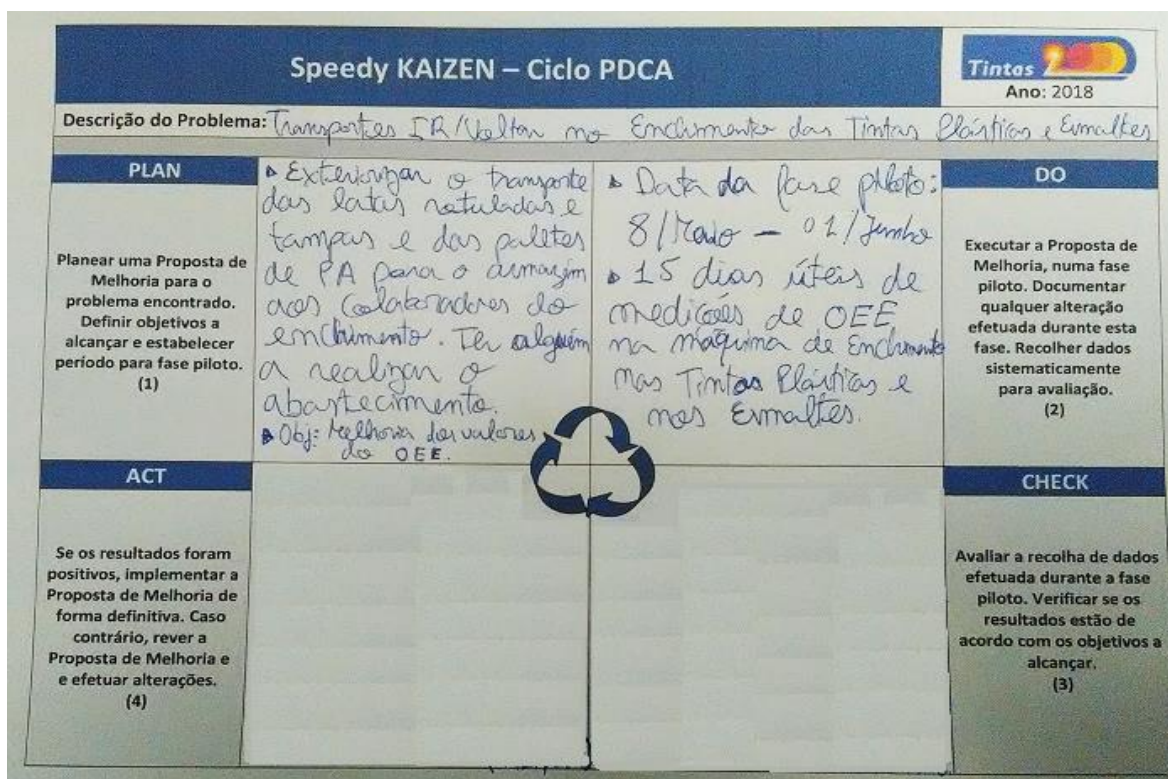 Speedy KAIZEN – Ciclo PDCA
Tintas 2000
Ano: 2018
Descrição do Problema: Transportes IR/Voltar no Enchimento das Tintas Plásticas e Esmaltes
PLAN
Planear uma Proposta de
Melhoria para o
problema encontrado.
Definir objetivos a
alcançar e estabelecer
período para fase piloto.
(1)
▸ Exteriorizar o transporte
das latas rotuladas e
tampas e das paletes
de PA para o armazém
aos colaboradores do
enchimento. Ter alguém
a realizar o
abastecimento.
▸ Obj: Melhoria dos valores
do OEE.
▸ Data da fase piloto:
8/Maio – 01/Junho
▸ 15 dias úteis de
medições de OEE
na máquina de Enchimento
nas Tintas Plásticas e
nos Esmaltes.
DO
Executar a Proposta de
Melhoria, numa fase
piloto. Documentar
qualquer alteração
efetuada durante esta
fase. Recolher dados
sistematicamente
para avaliação.
(2)
ACT
Se os resultados foram
positivos, implementar a
Proposta de Melhoria de
forma definitiva. Caso
contrário, rever a
Proposta de Melhoria e
e efetuar alterações.
(4)
CHECK
Avaliar a recolha de dados
efetuada durante a fase
piloto. Verificar se os
resultados estão de
acordo com os objetivos a
alcançar.
(3)